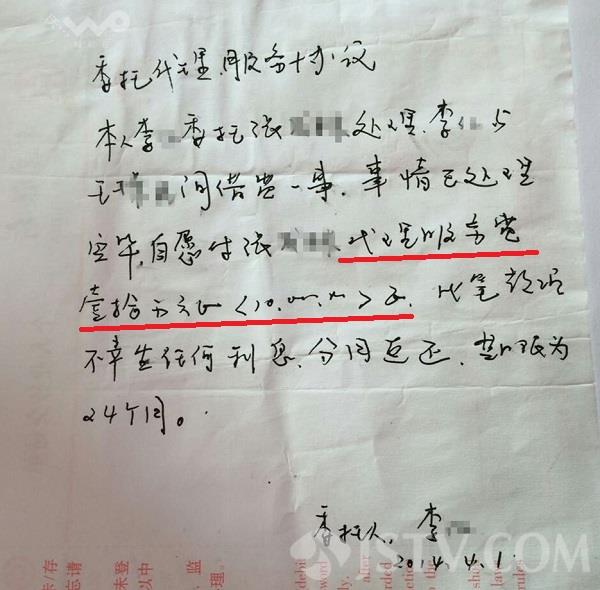 委托代理服务协议
本人李 委托张 处理李 与
王 间借贷一事,事情已处理
完毕,自愿付张 代理服务费
壹拾万元正 元.此笔款项
不产生任何利息,分月返还,期限为
24个月。
委托人:李
2014.4.1.
JSTV.COM
示/存
忘请
未登 监
以中 理。